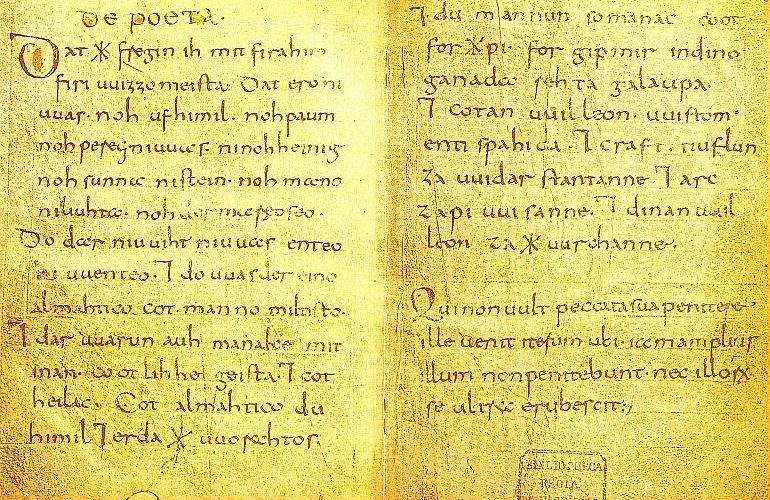 De poeta.
Dat ᚷfregin ih mit firahim
firi uuizzo meista. Dat ero ni
uuas. noh ufhimil. noh paum
noh pereg ni uuas. ni noh heinig
noh sunna ni stein. noh mano
ni liuhta. noh der mareo seo.
Do dar niuuiht ni uuas enteo
ni uuenteo. ⁊ do uuas der eino
almahtico cot manno miltisto.
⁊ dar uuarun auh manake mit
inan. cootlihhe geista. ⁊ cot
heilac. Cot almahtico du
himil ⁊ erda ᚷuuorahtos.
⁊ du mannun so manac coot
forᚷpi. for gipmir indino
ganada rehta galaupa.
⁊ cotan uuilleon. uuistom.
enti spahida. ⁊ craft. tiuflun
za uuidar stantanne. ⁊ arc
zapi uuisanne. ⁊ dinan uuil
leon za ᚷuurchanne.
Qui non uult peccata sua penitere
ille uenit iterum ubi. iam amplius
illum non penitebunt. nec illorꝝ
se ultra erubescit.
BIBLIOTHECA
REGIA